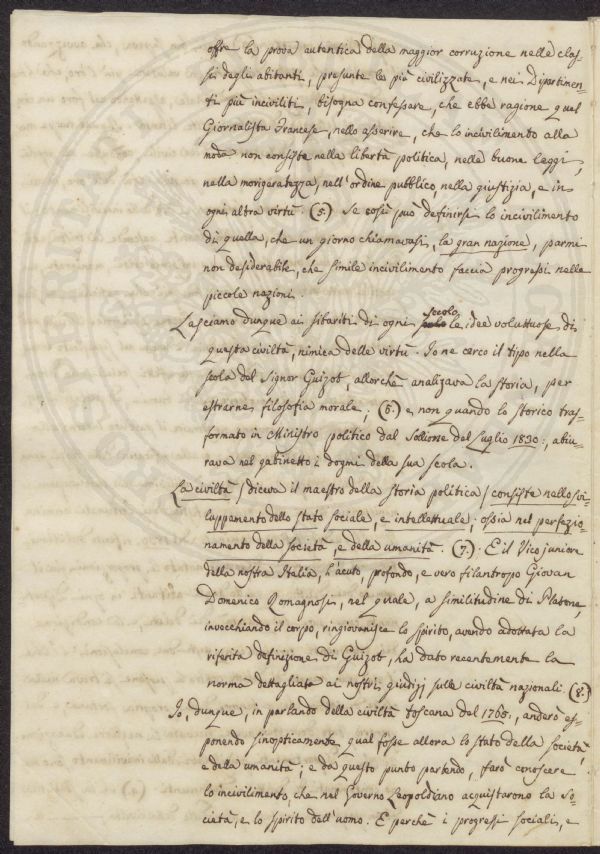 offre la prova autentica della maggior corruzione nelle clas-
si degli abitanti, presunte le più civilizzate, e nei Dipartimen-
ti più inciviliti, bisogna confessare, che ebbe ragione quel
Giornalista Francese, nello asserire, che lo incivilimento alla
moda non consiste nella libertà politica, nelle buone leggi,
nella morigeratezza, nell'ordine pubblico, nella giustizia, e in
ogni altra virtù. (5.) Se così può definirsi lo incivilimento
di quella, che un giorno chiamavasi, la gran nazione, parmi
non desiderabile, che simile incivilimento faccia progressi nelle
piccole nazioni.
Lasciamo dunque ai sibariti di ogni secolo le idee voluttuose di
questa civiltà, nimica delle virtù. Io ne cerco il tipo nella
scola del Signor Guizot, allorchè analizava la storia, per
estrarne filosofia morale; (6.) e non quando lo storico tras-
formato in Ministro politico dal Sollione del Luglio 1830:, abiu-
rava nel gabinetto i dogmi della sua scola.
La civiltà (diceva il maestro della storia politica) consiste nello svi-
luppamento dello stato sociale, e intellettuale; ossia nel perfezio-
namento della società, e della umanità. (7.). E il Vico juniore
della nostra Italia, l'acuto, profondo, e vero filantropo Giovan
Domenico Romagnosi, nel quale, a similitudine di Platone,
invecchiando il corpo, ringiovanisce lo spirito, avendo adottata la
riferita definizione di Guizot, ha dato recentemente la
norma dettagliata ai nostri giudizj sulle civiltà nazionali. (8.)
Io, dunque, in parlando della civiltà toscana del 1765:, anderò es-
ponendo sinopticamente qual fosse allora lo stato della società,
e della umanità; e da questo punto partendo, farò conoscere
lo incivilimento, che nel Governo Leopoldiano acquistarono la so-
cietà, e lo spirito dell'uomo. E perchè i progressi sociali, e